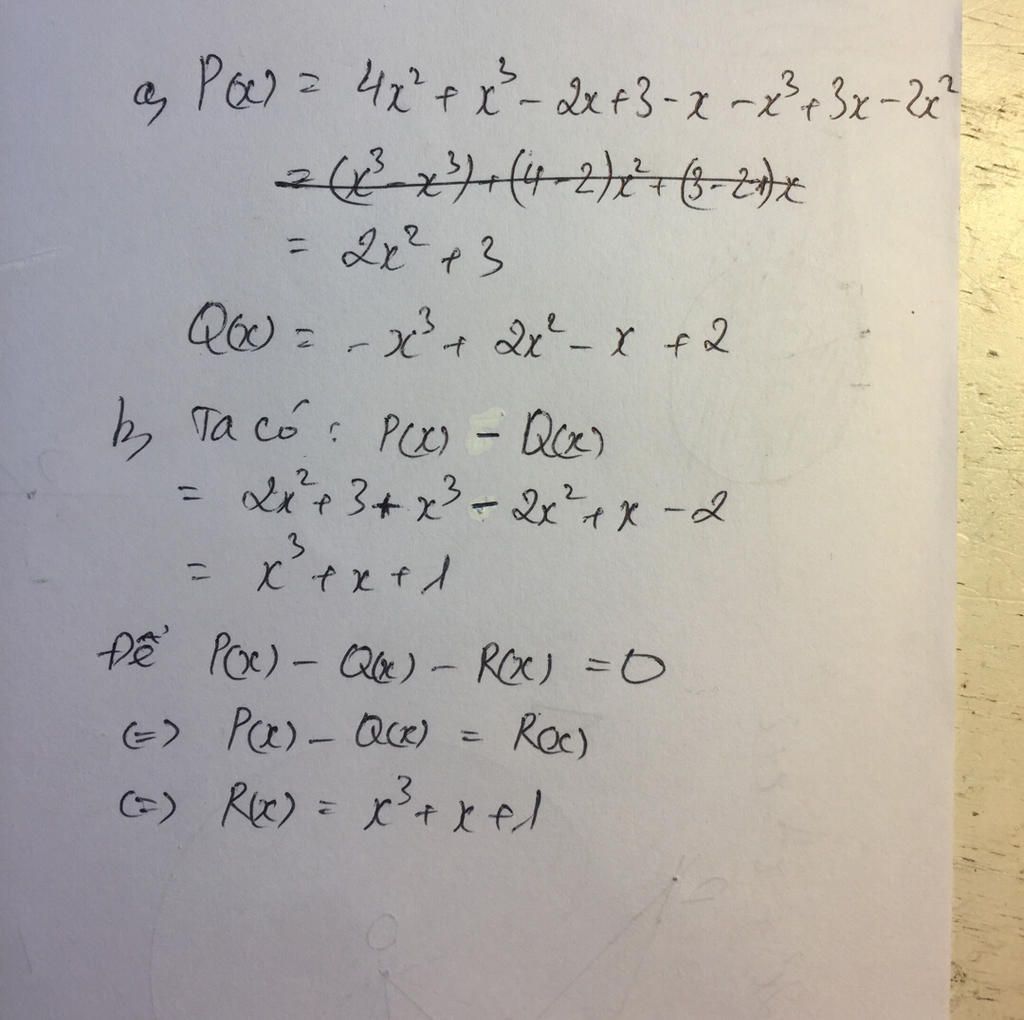 a, P(x) = 4x² + x³ - 2x + 3 - x - x³ + 3x - 2x²
= (x³ - x³) + (4 - 2)x² + (3 - 2 )x
= 2x² + 3
Q(x) = - x³ + 2x² - x + 2
b, Ta có : P(x) - Q(x)
= 2x² + 3 + x³ - 2x² + x - 2
= x³ + x + 1
Để P(x) - Q(x) - R(x) = 0
(=) P(x) - Q(x) = R(x)
(=) R(x) = x³ + x + 1